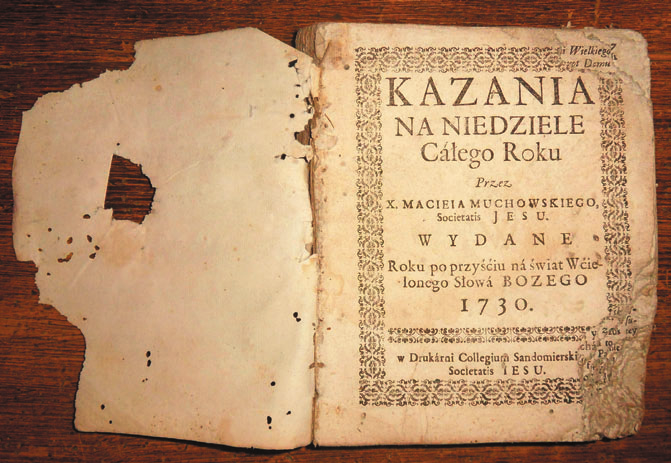 i Wielkiego
Domu
KAZANIA
NA NIEDZIELE
Cáłego Roku
Przez
X. MACIEIA MUCHOWSKIEGO,
Societatis JESU.
WYDANE
Roku po przyśćiu ná świat Wćie-
lonego Słowá BOZEGO
1730.
w Drukárni Collegium Sandomierski
Societatis IESU.